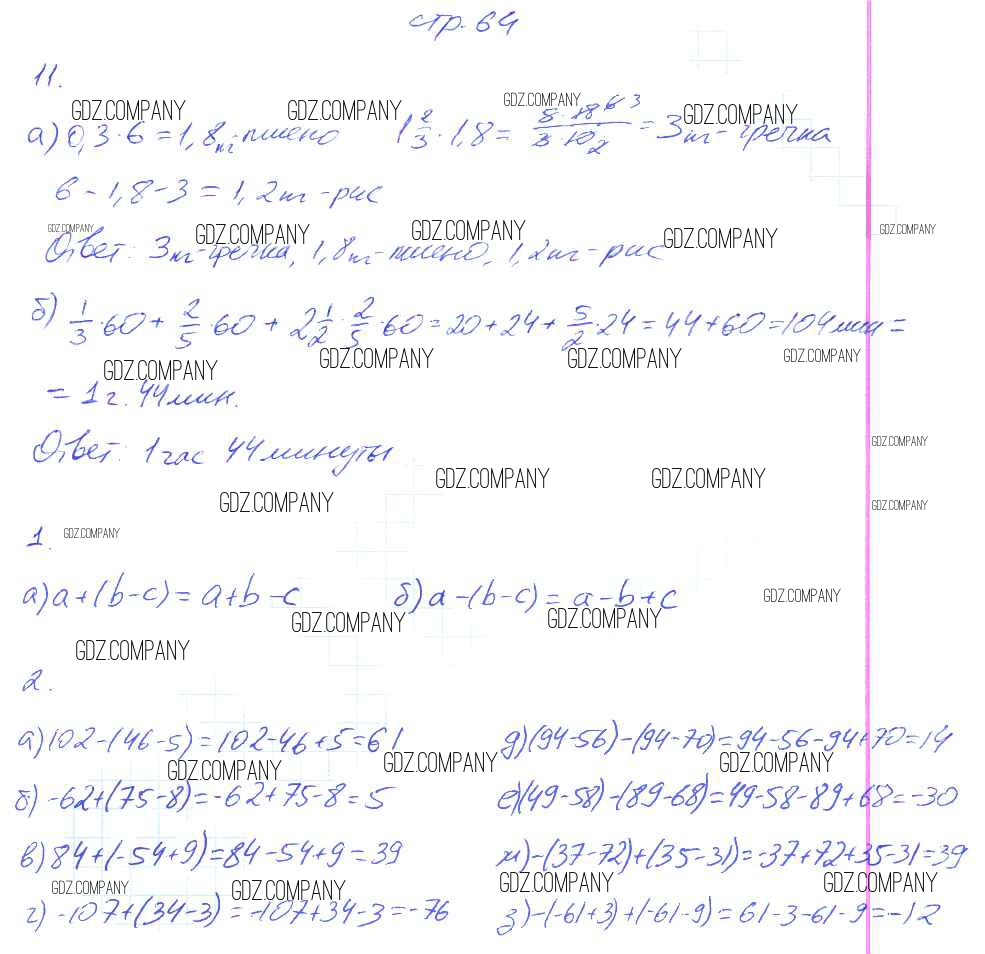 стр. 64
11.
GDZ.COMPANY GDZ.COMPANY GDZ.COMPANY GDZ.COMPANY
а) 0,3·6=1,8кг-пшено 1 2/3 · 1,8 = 5·18 6 3 / 3·10 2 = 3кг-гречка
6-1,8-3=1,2кг-рис
GDZ.COMPANY GDZ.COMPANY GDZ.COMPANY GDZ.COMPANY GDZ.COMPANY
Ответ: 3кг-гречка, 1,8кг-пшено, 1,2кг-рис
б) 1/3·60+ 2/5·60+ 2 1/2· 2/5·60=20+24+ 5/2·24=44+60=104мин=
GDZ.COMPANY GDZ.COMPANY GDZ.COMPANY GDZ.COMPANY
=1ч. 44мин.
Ответ: 1час 44минуты
GDZ.COMPANY
GDZ.COMPANY GDZ.COMPANY GDZ.COMPANY GDZ.COMPANY
1. GDZ.COMPANY
а) a+(b-c)=a+b-c б) a-(b-c)=a-b+c GDZ.COMPANY
GDZ.COMPANY GDZ.COMPANY
GDZ.COMPANY
2.
а) 102-(46-5)=102-46+5=61 д) (94-56)-(94-70)=94-56-94+70=14
GDZ.COMPANY GDZ.COMPANY GDZ.COMPANY
б) -62+(75-8)=-62+75-8=5 е) (49-58)-(89-68)=49-58-89+68=-30
в) 84+(-54+9)=84-54+9=39 ж) -(37-72)+(35-31)=-37+72+35-31=39
GDZ.COMPANY GDZ.COMPANY GDZ.COMPANY GDZ.COMPANY
г) -107+(34-3)=-107+34-3=-76 з) -(-61+3)+(-61-9)=61-3-61-9=-12